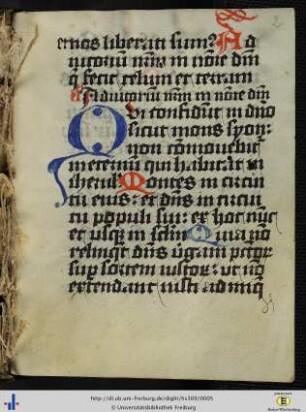 2
ernos liberati sumꝰ Ad
iutoriū nrm̄ in noīe dm̄
q̄ fecit celum et terram
Adiutoriū nrm̄ in noīe dm̄
Qui confidūt in dn̄o
sicut mons syon:
non cōmouebit᷑
in eternū qui habitat in
iherlꝫ Montes in circui
tu eius: et dn̄s in circui
tu populi sui: ex hoc nūc
et usq̄ in sclm̄ Quia nō
relinq̄t dn̄s ūgam pctoꝝ
sup sortem iustoꝝ: ut nō
extendant iusti ad iniq̄
http://dl.ub.uni-freiburg.de/diglit/hs300/0005
© Universitätsbibliothek Freiburg